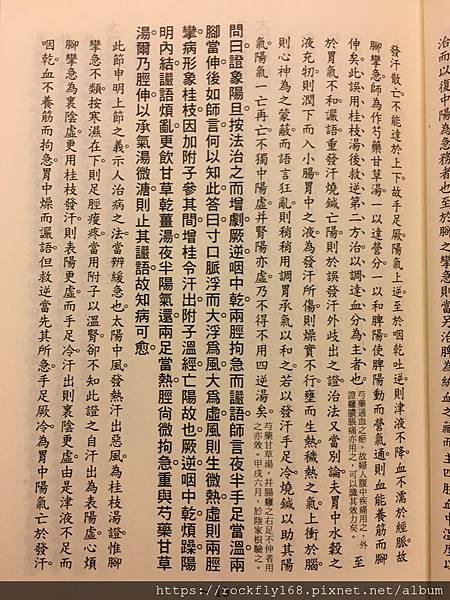 治而以復中陽為急務者也至於腳之攣急則當另治脾為統血之藏而主四肢血中溫度以
發汗散亡不能達於上下故手足厥陽氣上逆至於咽乾吐逆則津液不降血不濡於經脈故
腳攣急師為作芍藥甘草湯一以達營分一以和脾陽使脾陽動而營氣通則血能養筋而腳
伸矣此誤用桂枝湯後救逆第二方治以調達血分為主者也芍藥通血之瘀故婦人腹中疾痛用之外證癰膿脹痛亦用之可以識其效力矣至
於胃氣不和讝語重發汗燒鍼亡陽則於誤發汗外歧出之證治法又當別論夫胃中水穀之
液充牣則潤下而入小腸胃中之液為發汗所傷則燥實不行壅而生熱穢熱之氣上衝於腦
則心神為之蒙蔽而語言狂亂則稍稍用調胃承氣以和之若以發汗手足冷燒鍼以助其陽
氣陽氣一亡再亡不獨中陽虛并腎陽亦虛乃不得不用四逆湯矣芍藥甘草湯并腸癰之右足不伸者用之亦效甲戌六月於陸家根驗之
問曰證象陽旦按法治之而增劇厥逆咽中乾兩脛拘急而讝語師言夜半手足當溫兩
腳當伸後如師言何以知此答曰寸口脈浮而大浮為風大為虛風則生微熱虛則兩脛
攣病形象桂枝因加附子參其間增桂令汗出附子溫經亡陽故也厥逆咽中乾煩躁陽
明內結讝語煩亂更飲甘草乾薑湯夜半陽氣還兩足當熱脛尚微拘急重與芍藥甘草
湯爾乃脛伸以承氣湯微溏則止其讝語故知病可愈
此節申明上節之義示人治病之法當辨緩急也太陽中風發熱汗出惡風為桂枝湯證惟腳
攣急不類按寒濕在下則足脛痠疼當用附子以溫腎卻不知此證之自汗出為表陽虛心煩
腳攣急為裏陰虛更用桂枝發汗則表陽更虛而手足冷汗出則裏陰更虛由是津液不足而
咽乾血不養筋而拘急胃中燥而讝語但救逆當先其所急手足厥冷為胃中陽氣亡於發汗
https://rockfly168.pixnet.net/album